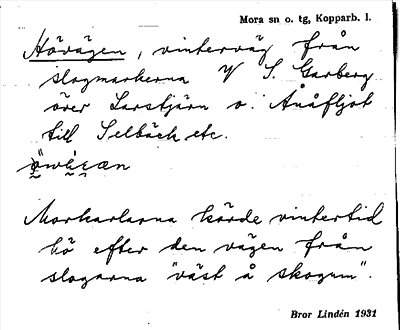 Mora sn o. tg, Kopparb. l.
Hövägen, vinterväg från
slogmarkerna V S. Garberg
över Larstjärn o. Anåfljot
till Selbäck etc.
Morkarlarna körde vintertid
hö efter den vägen från
slogarna "väst å skogum".
Bror Lindén 1931